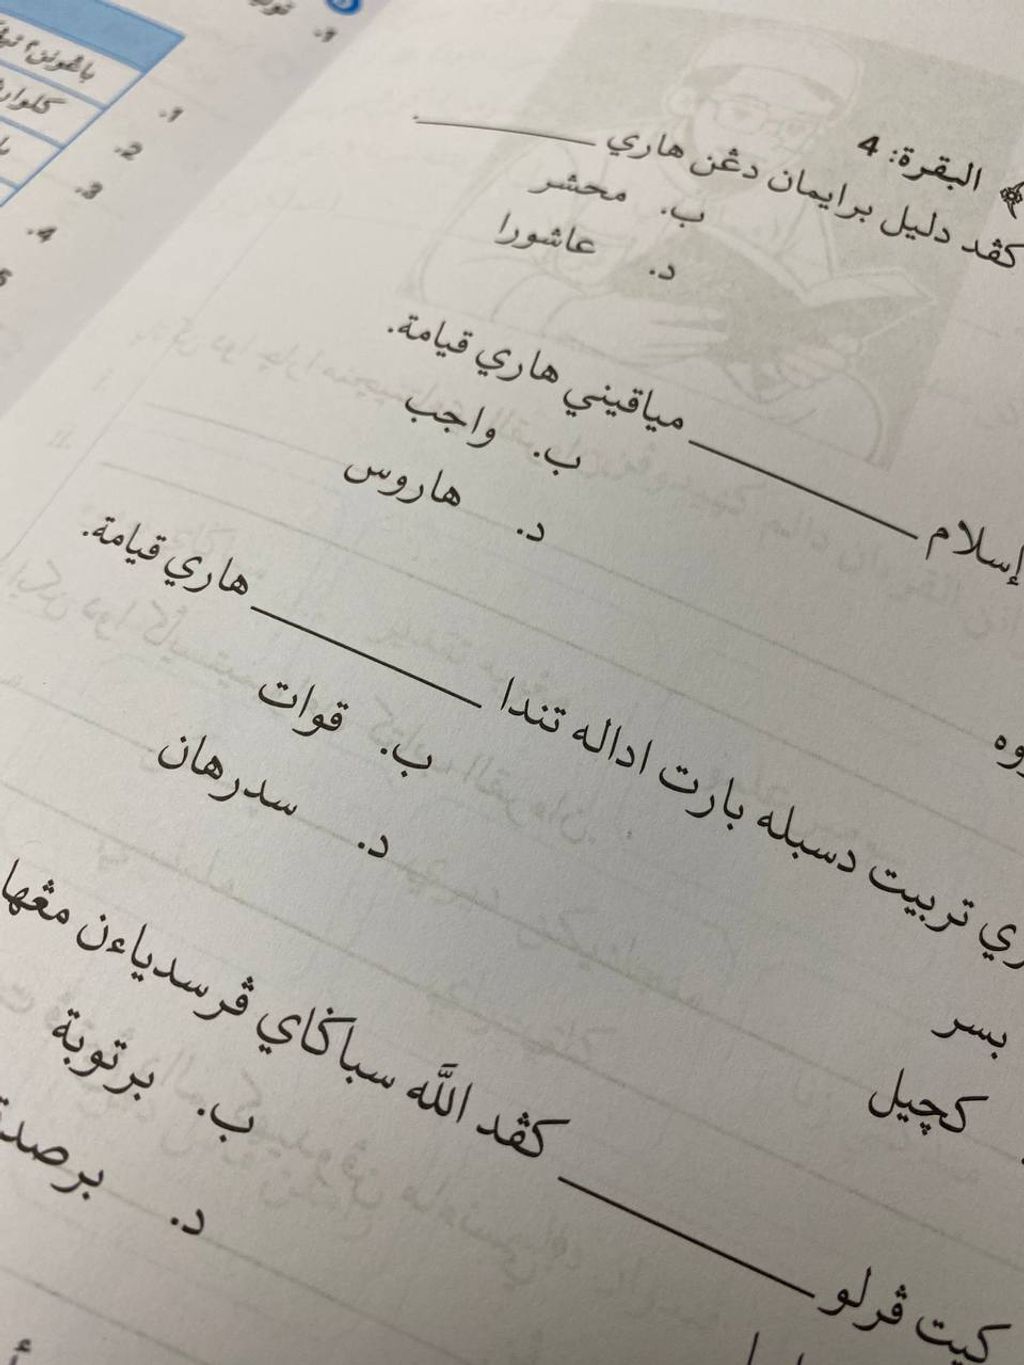 البقرة: 4
كڤد دليل برايمان دڠن هاري ________.
ب. محشر
د. عاشورا
إسلام ________ مياقيني هاري قيامة.
ب. واجب
د. هاروس
تربيت دسبله بارت اداله تندا ________ هاري قيامة.
بسر
ب. قوات
كچيل
د. سدرهان
كيت ڤرلو ________ كڤد الله سباݢاي ڤرسدياءن
ب. برتوبة
د.
.1
.2
.3
.4